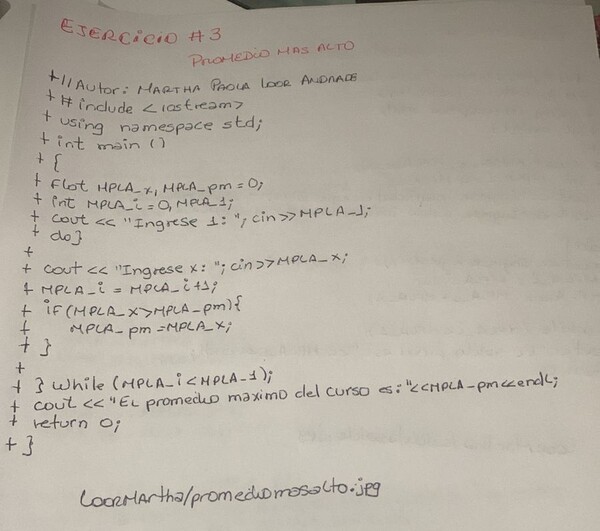 EJERCiCiO #3
PROMEDIO MAS ALTO
+// Autor: MARTHA PAOLA LOOR ANDRADE
+ # include <iostream>
+ using namespace std;
+ int main ()
+ {
+ flot MPLA_x, MPLA_pm = 0;
+ int MPLA_i = 0, MPLA_1;
+ cout << "Ingrese 1: "; cin>>MPLA_1;
+ do}
+
+ cout << "Ingrese x: "; cin>>MPLA_x;
+ MPLA_i = MPLA_i+1;
+ if (MPLA_x>MPLA_pm){
+ MPLA_pm =MPLA_x;
+ }
+
+ } while (MPLA_i < MPLA_1);
+ cout << "EL promedio maximo del curso es: "<<MPLA_pm<<endl;
+ return 0;
+ }
LoorMartha/promediomasalto.jpg